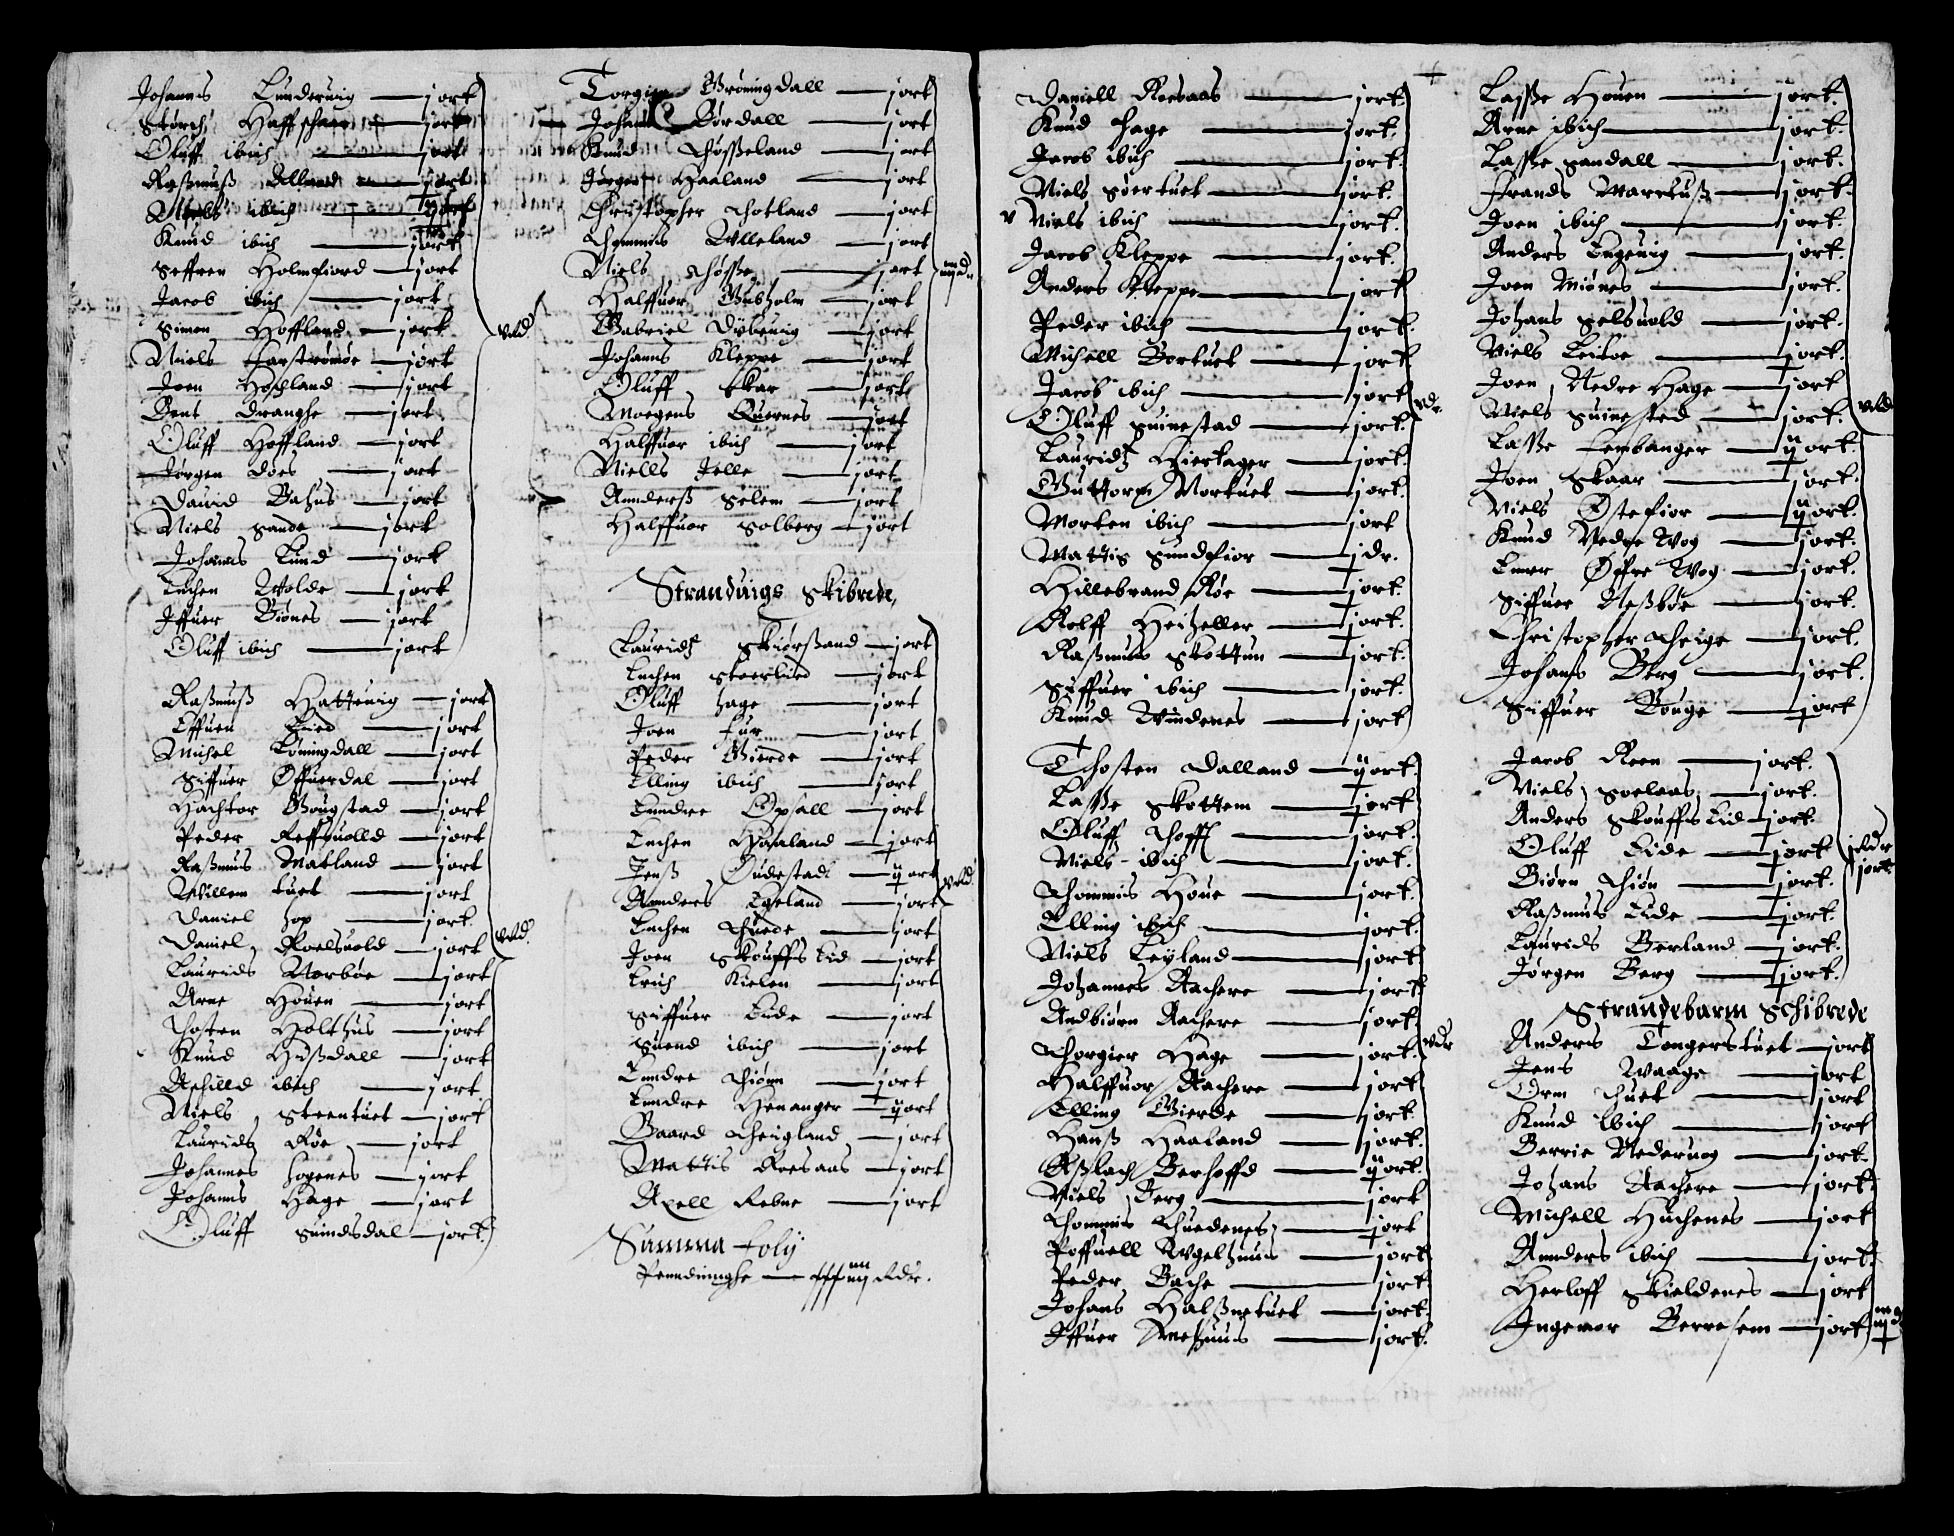 Johannis Lunderuig — j ort
Størch Haffschaar — j ort
Oluff ibid — j ort
Raßmuß Alland — j ort
Niels ibid — j ort
Knud ibid — j ort
Seffren Holmefiord — j ort
Jacob ibid — j ort
Simen Hoffland — j ort
Niels Jarstrømøe — j ort
Joen Hochland — j ort
Bent Dranghe — j ort
Oluff Hoffland — j ort
Jørgen Does — j ort
Dauid Bahus — j ort
Niels Sande — j ort
Johannis Lund — j ort
Luchen Wolde — j ort
Iffuer Biones — j ort
Oluff ibid — j ort
Raßmuß Hatteuig — j ort
Effuen Lied — j ort
Michel Løningdall — j ort
Siffuer Øffuerdal — j ort
Hachtor Gougstad — j ort
Peder Reffsuolld — j ort
Raßmus Matland — j ort
Willem tuet — j ort
Daniel hop — j ort
Daniel Roelsuold — j ort
Laurids Norbøe — j ort
Arne Houen — j ort
Thosten Holthus — j ort
Knud Hußdall — j ort
Aschilld ibid — j ort
Niels Steentuet — j ort
Laurids Røe — j ort
Johannes hopenes — j ort
Johannis Hage — j ort
Oluff Suindsdal — j ort
Grøningdall — j ort
Johannis Børdall — j ort
Knud Thøsseland — j ort
Jørgen Haaland — j ort
Christopher Thotland — j ort
Thommis Wlleland — j ort
Niels Thøsse — j ort
Halffuor Gubholm — j ort
Gabriel Dybeuig — j ort
Johannis Kleppe — j ort
Oluff Skar — j ort
Moegens Quernes — j ort
Halffuor ibid — j ort
Niells Jelle — j ort
Annderß Selem — j ort
Halffuor Solberg — j ort
Stranduigs Skibrede,
Lauridtz Skiørßand — j ort
Luchen Skoerlied — j ort
Oluff hage — j ort
Joen Fur — j ort
Peder Gierde — j ort
Elling ibid — j ort
Lundre Opsall — j ort
Luchen Haaland — j ort
Jenß Øudestadt — ij ort
Annders Egeland — j ort
Luchen Thuede — j ort
Joen Skouffs Eid — j ort
Erich Kielen — j ort
Siffuer Eide — j ort
Suend ibid — j ort
Lundre Thiønn — j ort
Lundre Henanger — ij ort
Baard Theigland — j ort
Mattis Roesaas — j ort
Axell Rebne — j ort
Summa foly
Penndinnghe — Rdr.
Daniell Roesaas — j ort.
Knud Hage — j ort.
Jacob ibid — j ort.
Niels Søertuet — j ort.
Niels ibid — j ort.
Jacob Kleppe — j ort.
Anders Kleppe — j ort
Peder ibid — j ort.
Michell Bortuet — j ort
Jacob ibid — j ort
Oluff Suinestad — j ort.
Lauridtz Hiertager — j ort.
Guttorm Mortuet — j ort.
Morten ibid — j ort
Mattis Sundfior — j dr.
Hillebrand Røe — j ort.
Rolff Heitzeller — j ort.
Raßmus Skottun — j ort.
Siffuer ibid — j ort.
Knud Windenes — j ort
Thosten Dalland — ij ort.
Lasse Skottem — j ort
Oluff Thoff — j ort.
Niels ibid — j ort.
Thommis Houe — j ort.
Elling ibid — j ort.
Niels Leyland — j ort
Johannes Aachere — j ort
Andbiørn Aachere — j ort.
Thorgier Hage — j ort.
Halffuor Aachere — j ort
Elling Gierde — j ort
Hanß Haaland — j ort.
Aßlach Berhoffd — ij ort.
Niels Berg — j ort
Thommis Thuedenes — j ort
Poffuell Wgelhuus — j ort
Peder Bache — j ort
Johans Halßnetuet — j ort.
Iffuer — j ort.
Lasse Houen — j ort.
Arne ibid — j ort.
Lasse Sandall — j ort.
Frands Marckuß — j ort.
Joen ibid — j ort.
Anders Engeuig — j ort.
Joen Miønes — j ort.
Johans Selsuold — j ort.
Niels Leitoe — j ort.
Joen Nedre Hage — j ort
Niels Suinested — j ort.
Lasse Lembanger — ij ort
Joen Skaar — j ort.
Niels Østefior — ij ort.
Knud Nedre Wog — j ort.
Einer Øffre Wog — j ort.
Siffuer Neßbøe — j ort.
Christopher Theige — j ort.
Johans Berg — j ort.
Siffuer Bouge — j ort
Jacob Reen — j ort.
Niels Soelaas — j ort.
Anders Skouffs Eid — j ort.
Oluff Eide — j ort
Biørn Thiøn — j ort.
Raßmus Eide — j ort.
Laurids Berland — j ort.
Jørgen Berg — j ort.
Strandebarm Schibrede
Anders Tongerstuet — j ort
Jens Waage — j ort
Orm Thuet — j ort
Knud ibid — j ort
Berrie Nederuog — j ort.
Johans Aachere — j ort.
Michell Huchenes — j ort
Annders ibid — j ort.
Herloff Skieldenes — j ort
Ingemor Berresem — j ort